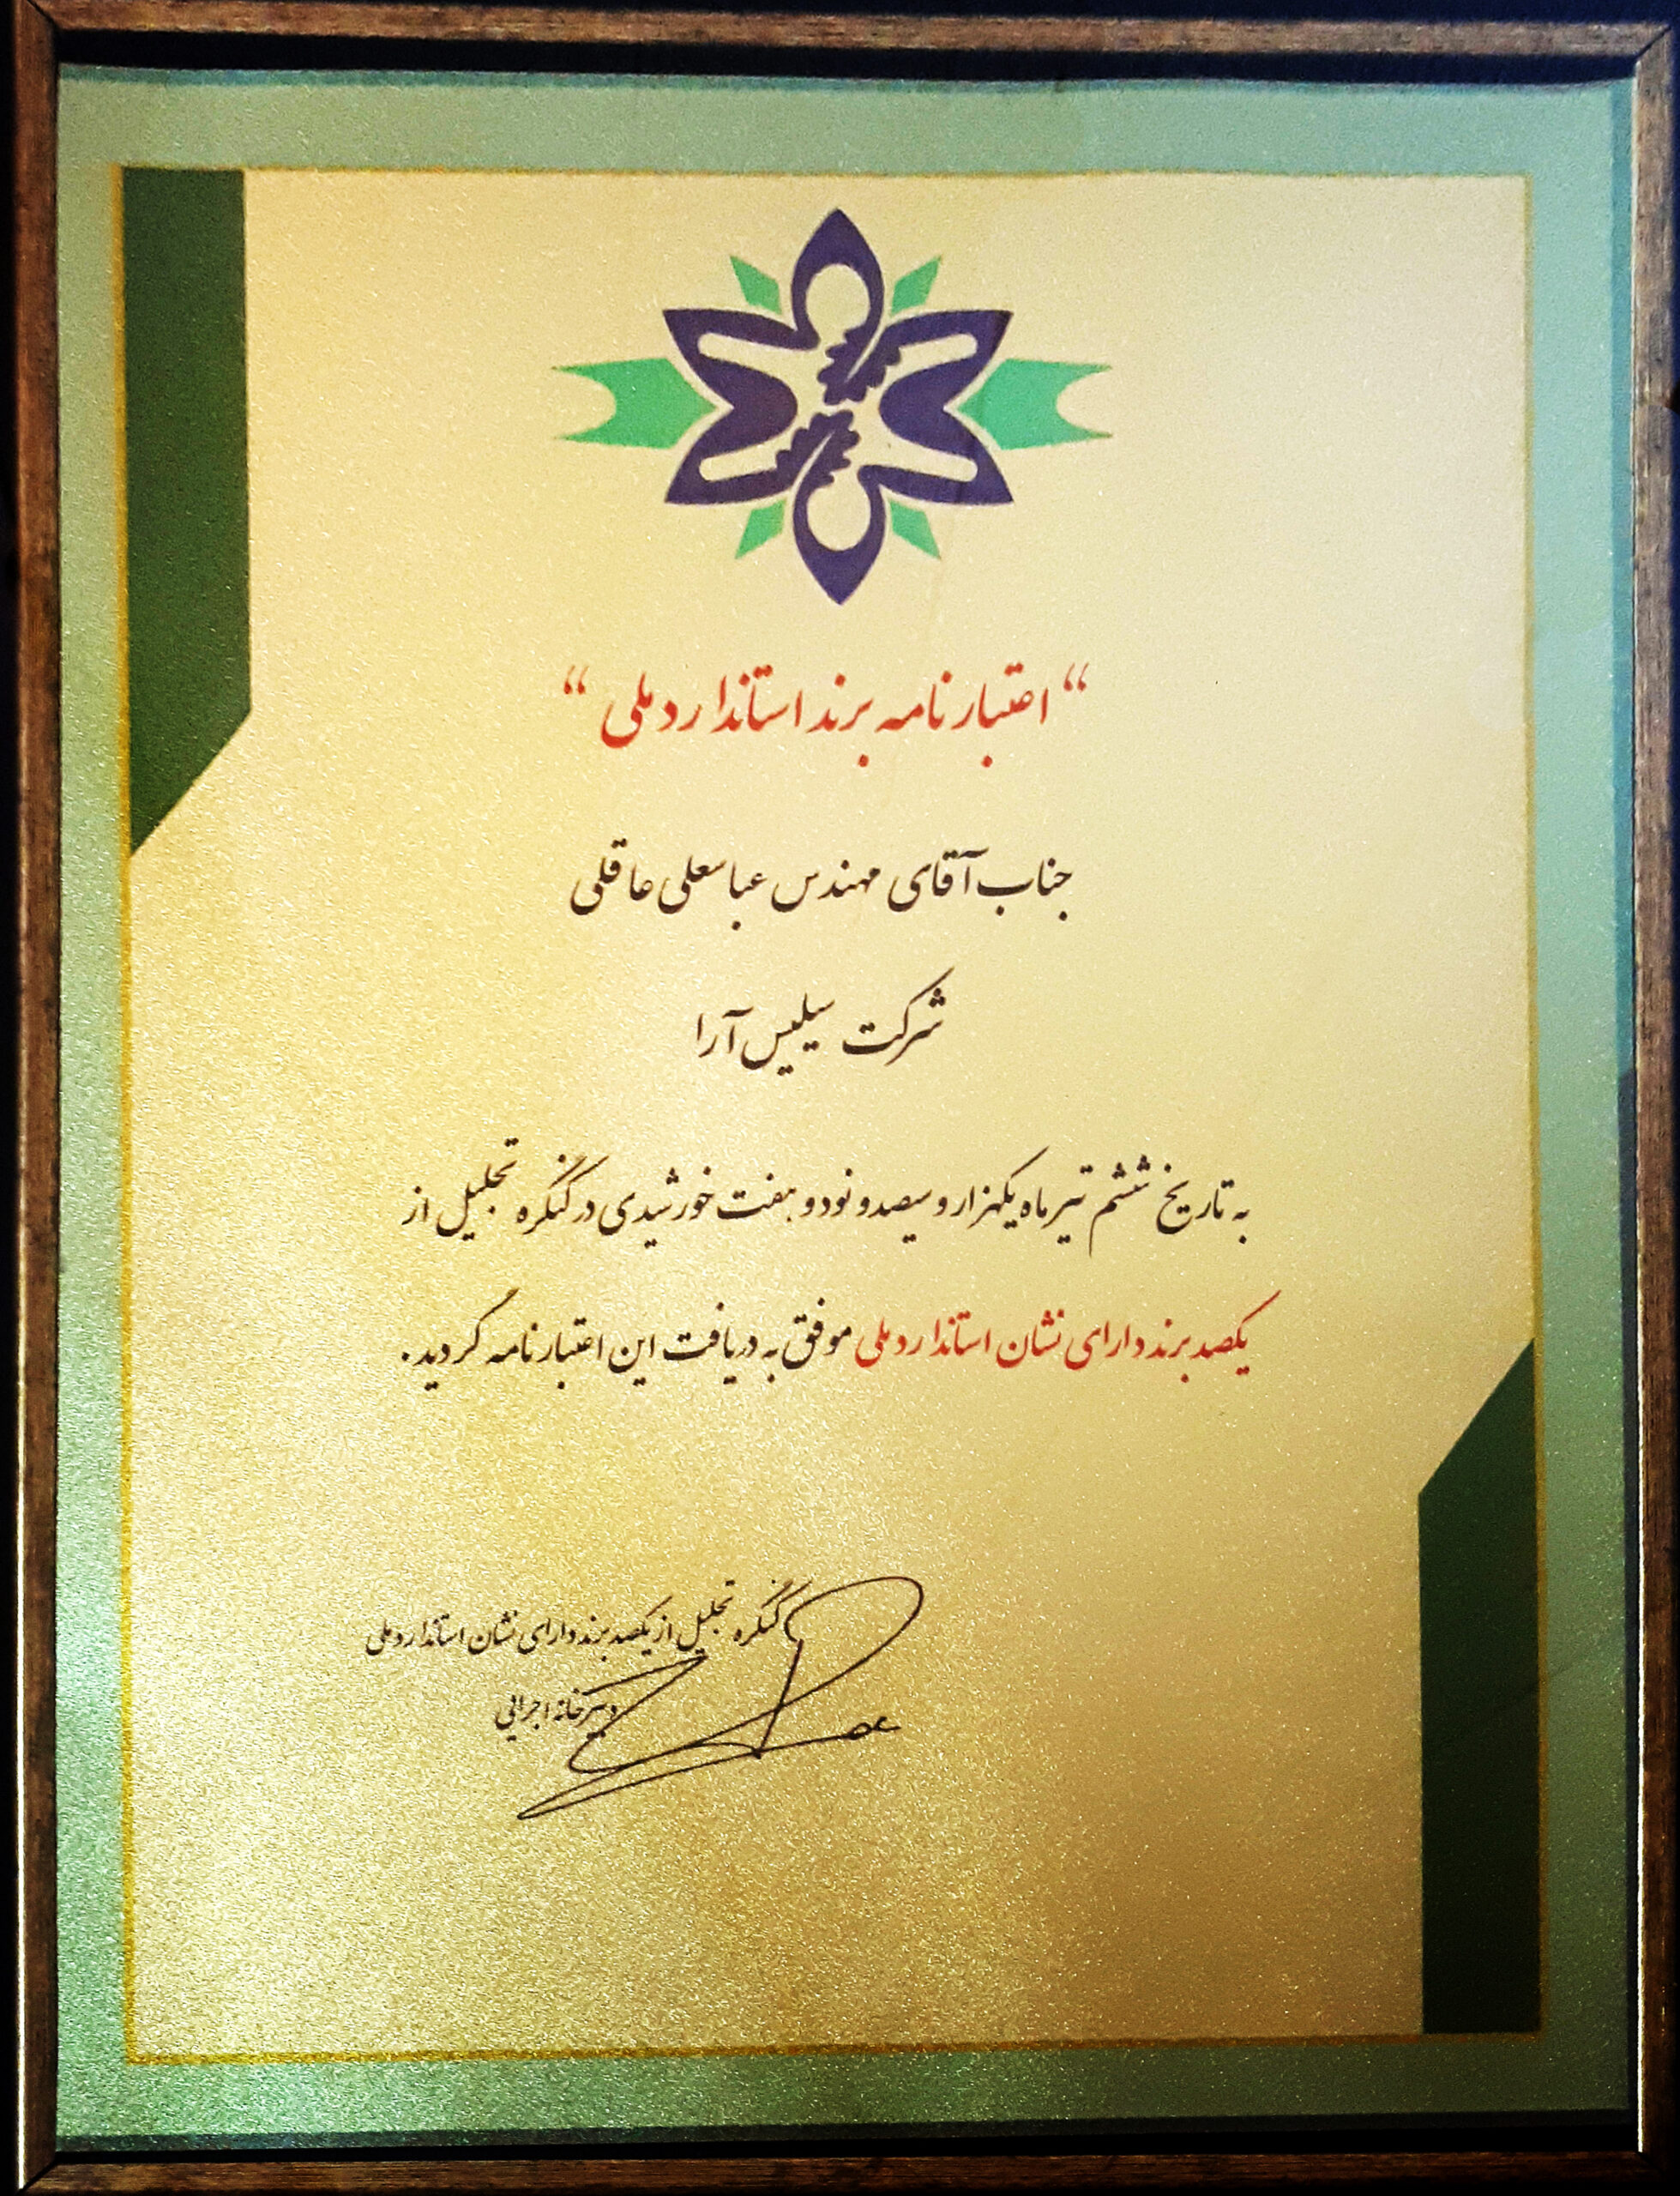 “اعتبارنامه برند استاندارد ملی“
جناب آقای مهندس عباسعلی عاقلی
شرکت سیلیس آرا
به تاریخ ششم تیر ماه یکهزار و سیصد و نود و هفت خورشیدی در کنگره تجلیل از
یکصد برند دارای نشان استاندارد ملی موفق به دریافت این اعتبارنامه گردید.
کنگره تجلیل از یکصد برند دارای نشان استاندارد ملی
دبیرخانه اجرایی